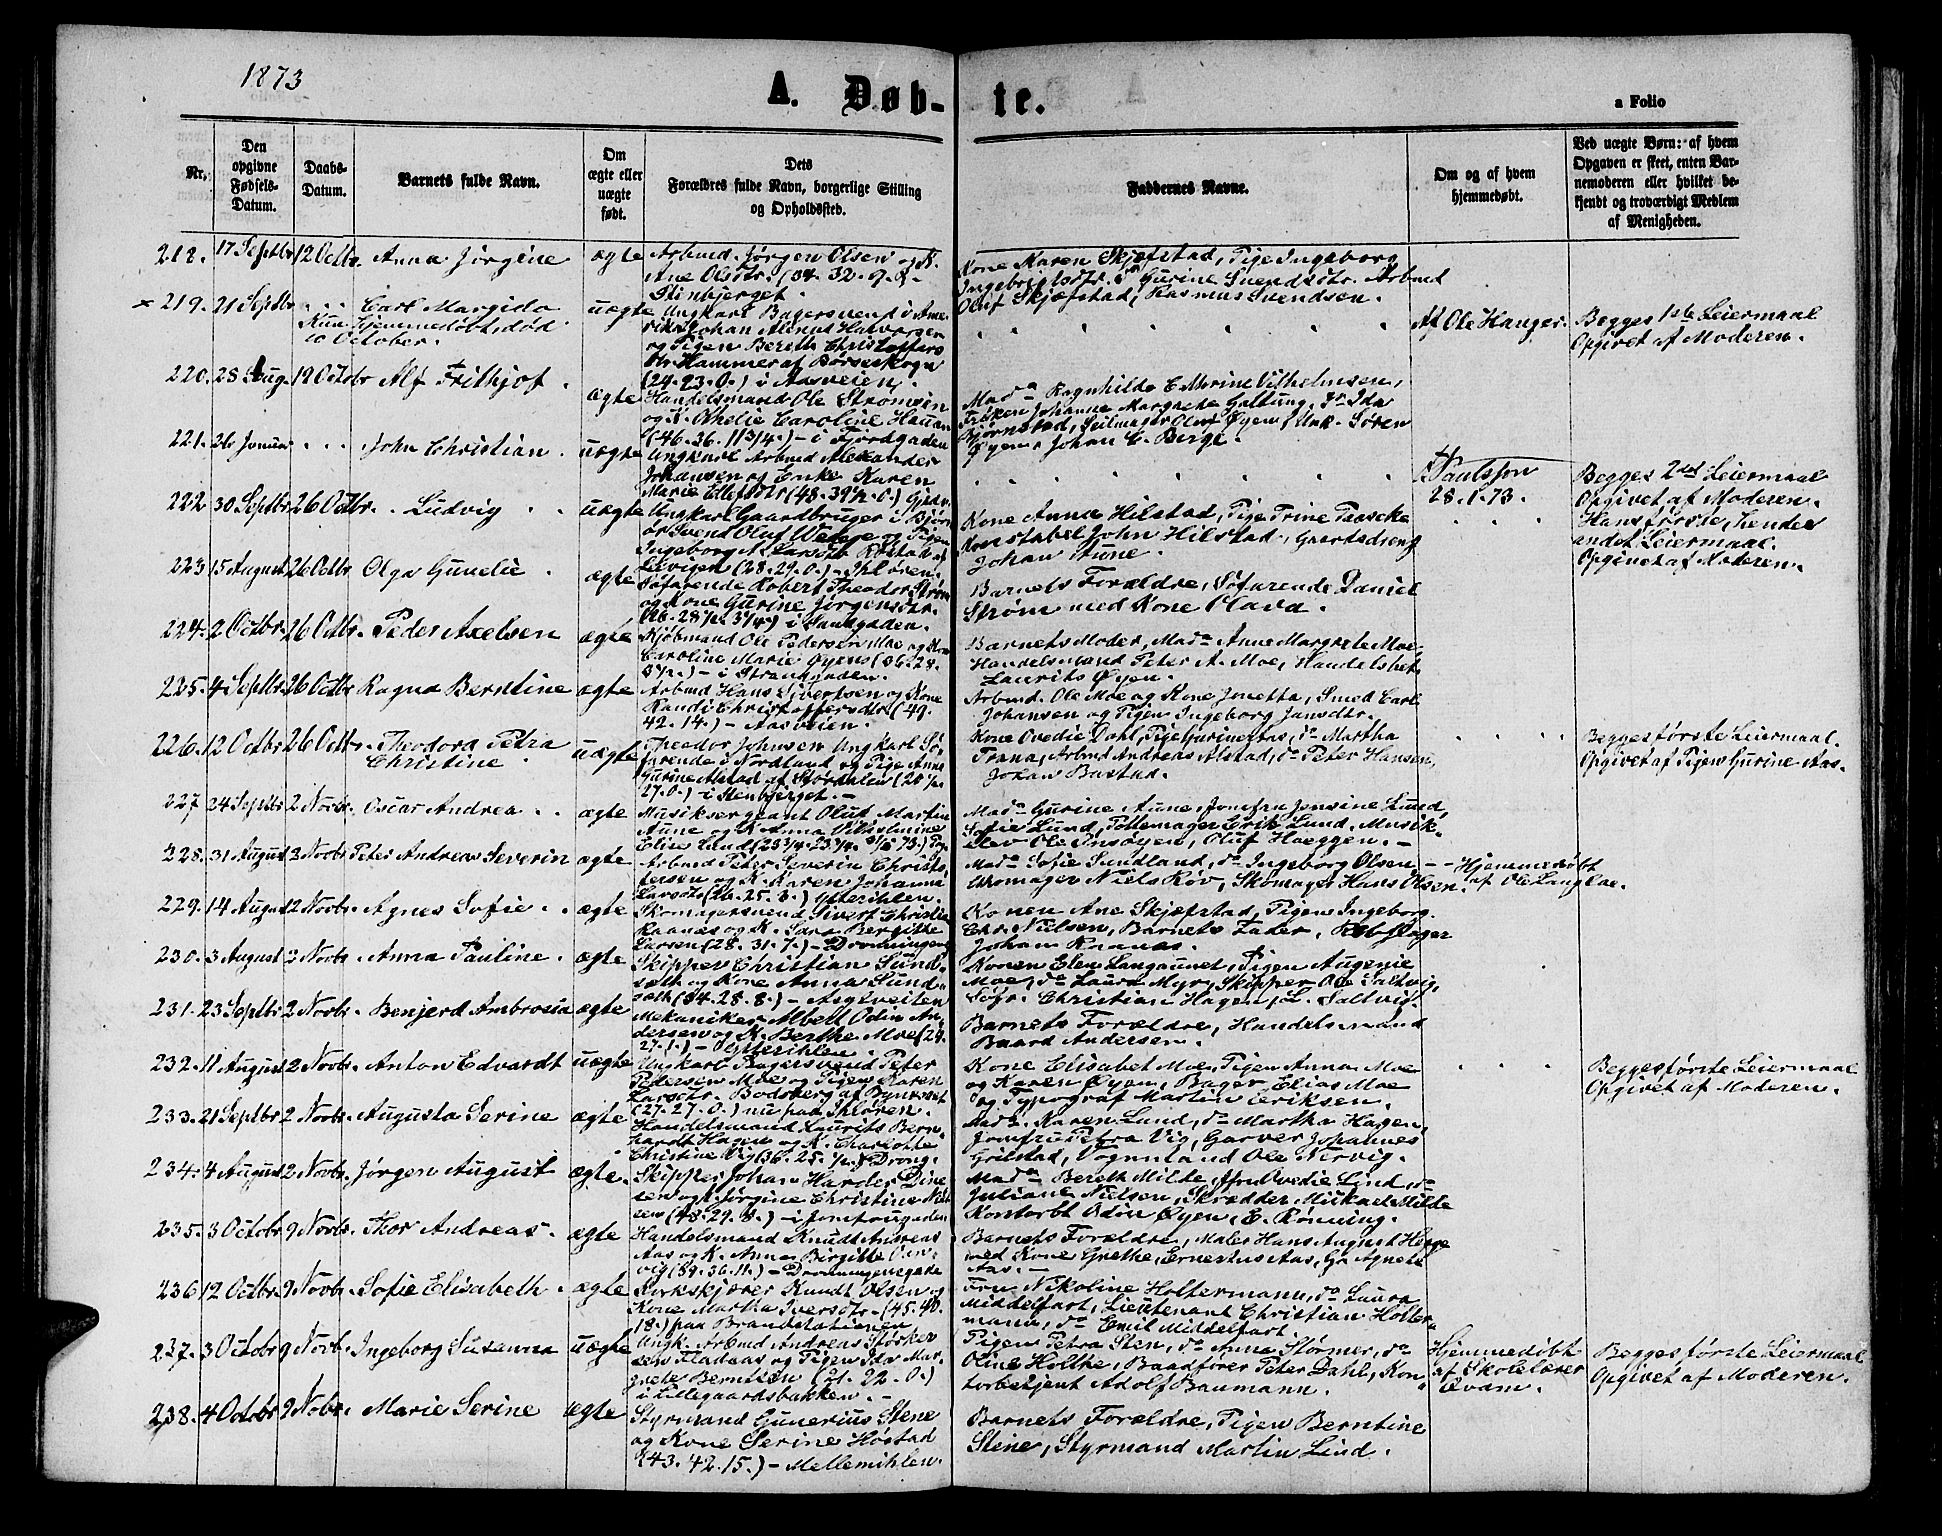 1873
A. Døb- te.
a Folio
Nr.
Den opgivne Fødsels-Datum.
Daabs-Datum.
Barnets fulde Navn.
Om ægte eller uægte født.
Dets Forældres fulde Navn, borgerlige Stilling og Opholdssted.
Faddernes Navne.
Om og af hvem hjemmedøbt.
Ved uægte Børn: af hvem Opgaven er skeet, enten Barnemoderen eller hvilket bekjendt og troværdigt Medlem af Menigheden.
218. 17 Septbr 12 Octbr. Anna Jørgine ægte Arbmd. Jørgen Olsen og K.
Ane Olsdtr. (34. 32. 9.)
Stenbjerget.
Kone Karen Skjefstad, Pige Ingeborg
Ingebrigtsdtr. Gurine Svendsdtr. Arbmd
Oluf Skjefstad, Rasmus Svendsen.
× 219. 21 Septbr . . . Carl Margido uægte
Kun Hjemmedøbt, død
10 October.
Ungkarl Bagersvend i Ame-
rika Johan Alenus Halvorsen
og Pigen Bereth Christoffers
dtr. Hammer af Børseskogn
(24. 23. 0.) i Aasveien.
Af Ole Hanger.
Begges 1ste Leiermaal
Opgivet af Moderen.
220. 28 Aug. 19 Octbr Alf Frithjof . ægte
Handelsmand Ole Strømsen
og K. Othelie Caroline Hauan
(46. 26. 11 3/4.) - i Fjordgaden
Mada Ragnhilda C. Marine Vilhelmsen,
Frøken Johanne Margrethe Galtung, Ida
Bjørnstad, Seilmager Oluf Øyen, Unk. Søren
Øyen, Johan C. Berge.
221. 26 Januar . . . John Christian . uægte
Ungkarl Arbmd Alexander
Johansen og Enke Karen
Marie Ellefsdtr (48. 39 1/2. 0.)
Paulsson
28.1.73.
Begges 2det Leiermaal
Opgivet af Moderen.
222 30 Septbr. 26 Octbr. . Ludvig . . uægte
Ungkarl Gaardbruger i Bjør
ør Svend Oluf Wegge og Pigen
Ingeborg M. Larsdtr Røstad af
Levigen (28. 29. 0.) - Ihløren.
Kone Anna Hilstad, Pige Trine Paascke
Konstabel John Hilstad, Gaardsdreng
Johan Aune.
Hans første, hendes
andet Leiermaal.
Opgivet af Moderen.
223 15 August 26 Octbr. Olga Gunelie . ægte
Søfarende Robert Theodor Strøm
og Kone Gurine Jørgensdtr.
(26. 28 1/2. 3 1/4.) i Sandgaden.
Barnets Forældre, Søfarende Daniel
Strøm med Kone Olava.
224. 2 Octbr. 26 Octbr. Peder Axelsen ægte
Kjøbmand Ole Pedersen Moe og Kone
Caroline Marie Øyen (36. 28.
8 1/2.) - i Strandgaden.
Barnets Moder, Mada Anne Margrete Moe,
Handelsmand Peter A. Moe, Handelsbet.
Laurits Øyen.
225. 4 Septbr. 26 Octbr Ragna Berntine ægte
Arbmd Hans Sivertsen og Kone
Randi Christoffersdtr. (49.
42. 14.) - Aasveien.
Arbmd. Ole Moe og Kone Jonetta, Smed Carl
Johansen og Pigen Ingeborg Jansdtr.
226. 12 Octbr 26 Octbr. Theodora Petra uægte
Christine .
Theodor Johnsen Ungkarl Sø-
farende i Nordland og Pige Anne
Gurine Alstad af Størdalen (20 1/2.
27. 0.) i Stenbjerget. -
Kone Ovedie Dahl, Pige Gurine Aas, do Martha
Trana, Arbmd Andreas Alstad, do Peter Hansen,
Johan Bastad.
Begges første Leiermaal.
Opgivet af Pigen Gurine Aas.
227 24 Septbr 2 Novbr. Oscar Andrea . . ægte
Musiksergeant Oluf Martin
Aune og K. Anna Vilhelmine
Elise Lund
Mada Gurine Aune, Jomfru Jonsine Lund,
Sofie Lund, Pottemager Erik Lund. Musik-
elev Ole Insøyen, Oluf Haeggen. -
228. 31 August 2 Novbr. Peter Andreas Severin ægte
Arbmd Peter Severin Christo-
fersen og K. Karen Johanne
Larsdtr (26. 25. 3.) Ytterihlen.
Mada Sofie Sundland, do Ingeborg Olsen,
Uhrmager Niels Røv, Skomager Hans Olsen.
- - Hjemmedøbt
af Ole Langlae.
229. 14 August 2 Novbr. Agnes Sofie . . ægte
Skomagersvend Sivert Christian
Raanæs og K. Sara Bergitte
Larsen (28. 31. 7.) - Dronningeng
Konen Ane Skjefstad, Pigen Ingeborg
Chr. Nielsen, Barnets Fader, Rebslager
Johan Raanæs.
230. 3 August 2 Novbr. Anna Pauline . ægte
Skipper Christian Sund-
sæth og Kone Anna Sund-
sæth (34. 28. 8.) - Asylveiten
Konen Elen Langaunet, Pigen Augenie
Moe, do Laura Myr, Skipper Ole Saltvig,
Søfr. Christian Hagen, L. Saltvig.
231. 23 Septbr 2 Novbr. Benjerd Ambrosia ægte
Mekaniker Albert Odin An-
dersen og K. Berthe Moe (24.
27. 1.) - Ytterihlen.
Barnets Forældre, Handelsmand
Baard Andersen.
232. 11 August 2 Novbr. Anton Edvardt uægte
Ungkarl Bagersvend Peter
Pedersen Moe og Pigen Karen
Larsdtr. Bodsberg af Bynesset
(27. 27. 0.) nu paa Ihløren.
Kone Elisabet Moe, Pigen Anna Moe
og Karen Øyen, Bager Elias Moe
og Typograf Martin Eriksen.
Begges første Leiermaal
Opgivet af Moderen.
233. 21 Septbr 2 Novbr. Augusta Serine . ægte
Handelsmand Laurits Bern-
hardt Hagen og K. Charlotte
Christine Vig (36. 25. 1/2.) Drong.
Mada. Karen Lund, do Martha Hagen,
Jomfru Petra Vig, Garver Johannes
Grilstad, Vognmand Ole Nervig.
234. 4 August 2 Novbr. Jørgen August ægte.
Skipper Johan Harder Dine
sen og K. Jørgine Christine Niel
sen (48. 29. 8.) - i Jomfrugaden
Mada Bereth Milde, Jfru Ovedie Lind, do
Juliane Nielsen, Skrædder Mikael Milde
Kontorbt Odin Øyen, E. Rønning.
235. 3 Octobr 9 Novbr. Thor Andreas . ægte
Handelsmand Knudt Andreas
Aas og K. Anna Birgitte Oen-
vig (39. 36. 11.) - Dronningensgade
Barnets Forældre, Maler Hans August Hegge
med Kone Grethe, Ernestus Aas, Agnete
Aas. -
236 12 Octbr. 9 Novbr. Sofie Elisabeth . ægte
Korkskjærer Knudt Olsen og
Kone Martha Iversdtr. (45. 40.
18.) paa Brandstationen
Fru Nikoline Holtermann, do Laura
Middelfart, Lieutenant Christian Holter-
mann, do Emil Middelfart.
237. 3 Octobr 9 Novbr. Ingeborg Susanna uægte
Ungk. Arbmd Andreas Størker
sen Fladaas og Pigen Ida Mar-
grete Berntsen (21. 22. 0.)
i Lillegaardsbakken. -
Pigen Petra Sten, do Anna Størmer, do
Oline Holthe, Baadfører Peter Dahl, Kon-
torbetjent Adolf Baumann.
Hjemmedøbt
af Skolelærer
Qvam.
Begges første Leiermaal
Opgivet af Moderen.
238. 4 Octobr 9 Nobr. Marie Serine ægte
Styrmand Gunerius Stene
og Kone Serine Høstad
(43. 42. 15.) - Mellemihlen.
Barnets Forældre, Pigen Berntine
Stene, Styrmand Martin Lind.